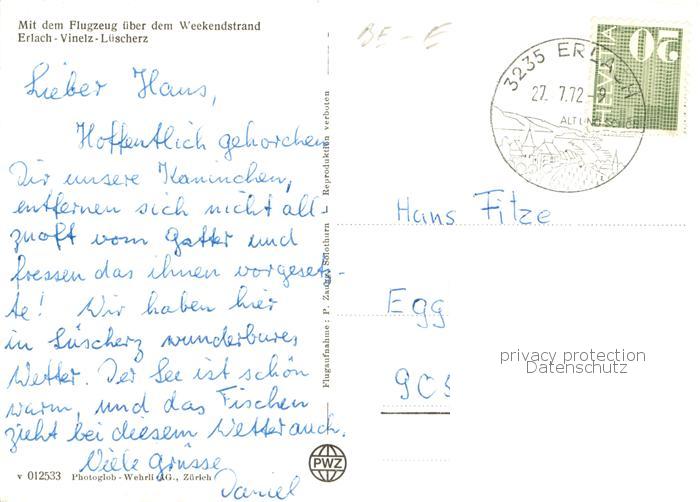 Mit dem Flugzeug über dem Weekendstrand
Erlach - Vinelz - Lüscherz
BE - E
3235 ERLACH
27. 7.72 - 9
HELVETIA
50
Lieber Hans,
Hoffentlich gehorchen
Dir unsere Kaninchen,
entfernen sich nicht all-
zuoft vom Gatter und
fressen das ihnen vorgesetz-
te! Wir haben hier
in Lüscherz wunderbures
Wetter. Der See ist schön
warm, und das Fischen
zieht bei diesem Wetter auch.
Viele Grüsse
Daniel
Flugaufnahme: P. Zaugg, Solothurn Reproduktion verboten
Hans Fitze
Egg
905
privacy protection
Datenschutz
v 012533 Photoglob - Wehrli AG., Zürich
PWZ